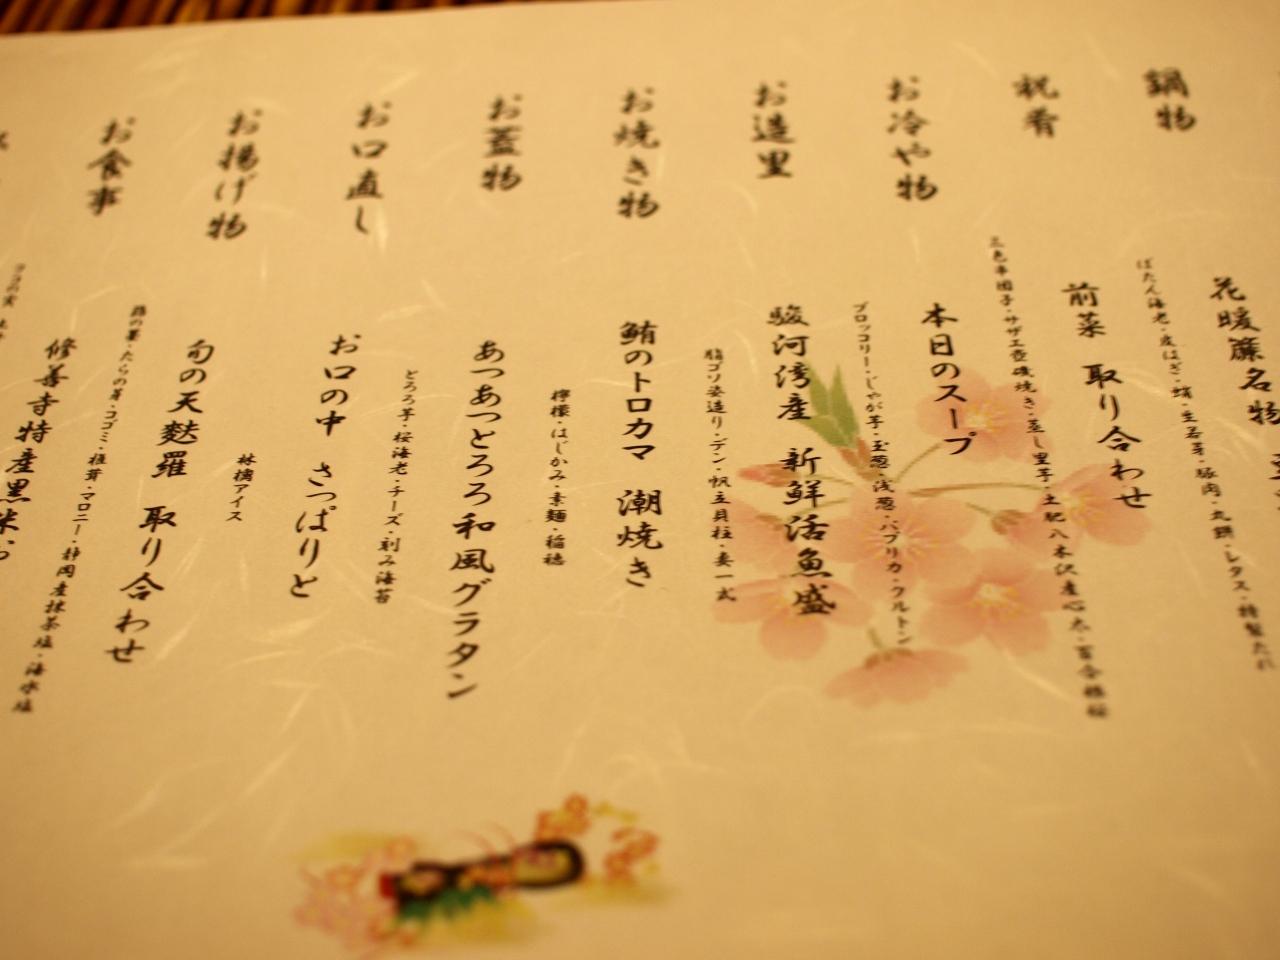 鍋物
花暖簾名物
ぼたん海老・皮はぎ・蛸・生若芽・豚肉・丸餅・レタス・特製たれ
祝肴
前菜 取り合わせ
三色串団子・サザエ壺磯焼き・蒸し里芋・土肥八木沢産心太・百合根桜
お冷や物
本日のスープ
ブロッコリー・じゃが芋・玉葱・浅葱・パプリカ・クルトン
お造里
駿河湾産 新鮮活魚盛
脂ゴソ姿造り・デン・帆立貝柱・妻一式
お焼き物
鮪のトロカマ 潮焼き
檸檬・はじかみ・素麺・稲穂
お蓋物
あつあつとろろ和風グラタン
とろろ芋・桜海老・チーズ・刻み海苔
お口直し
お口の中 さっぱりと
林檎アイス
お揚げ物
旬の天麩羅 取り合わせ
蕗の薹・たらの芽・コゴミ・椎茸・マロニー・静岡産抹茶塩・海水塩
お食事
修善寺特産黒米お